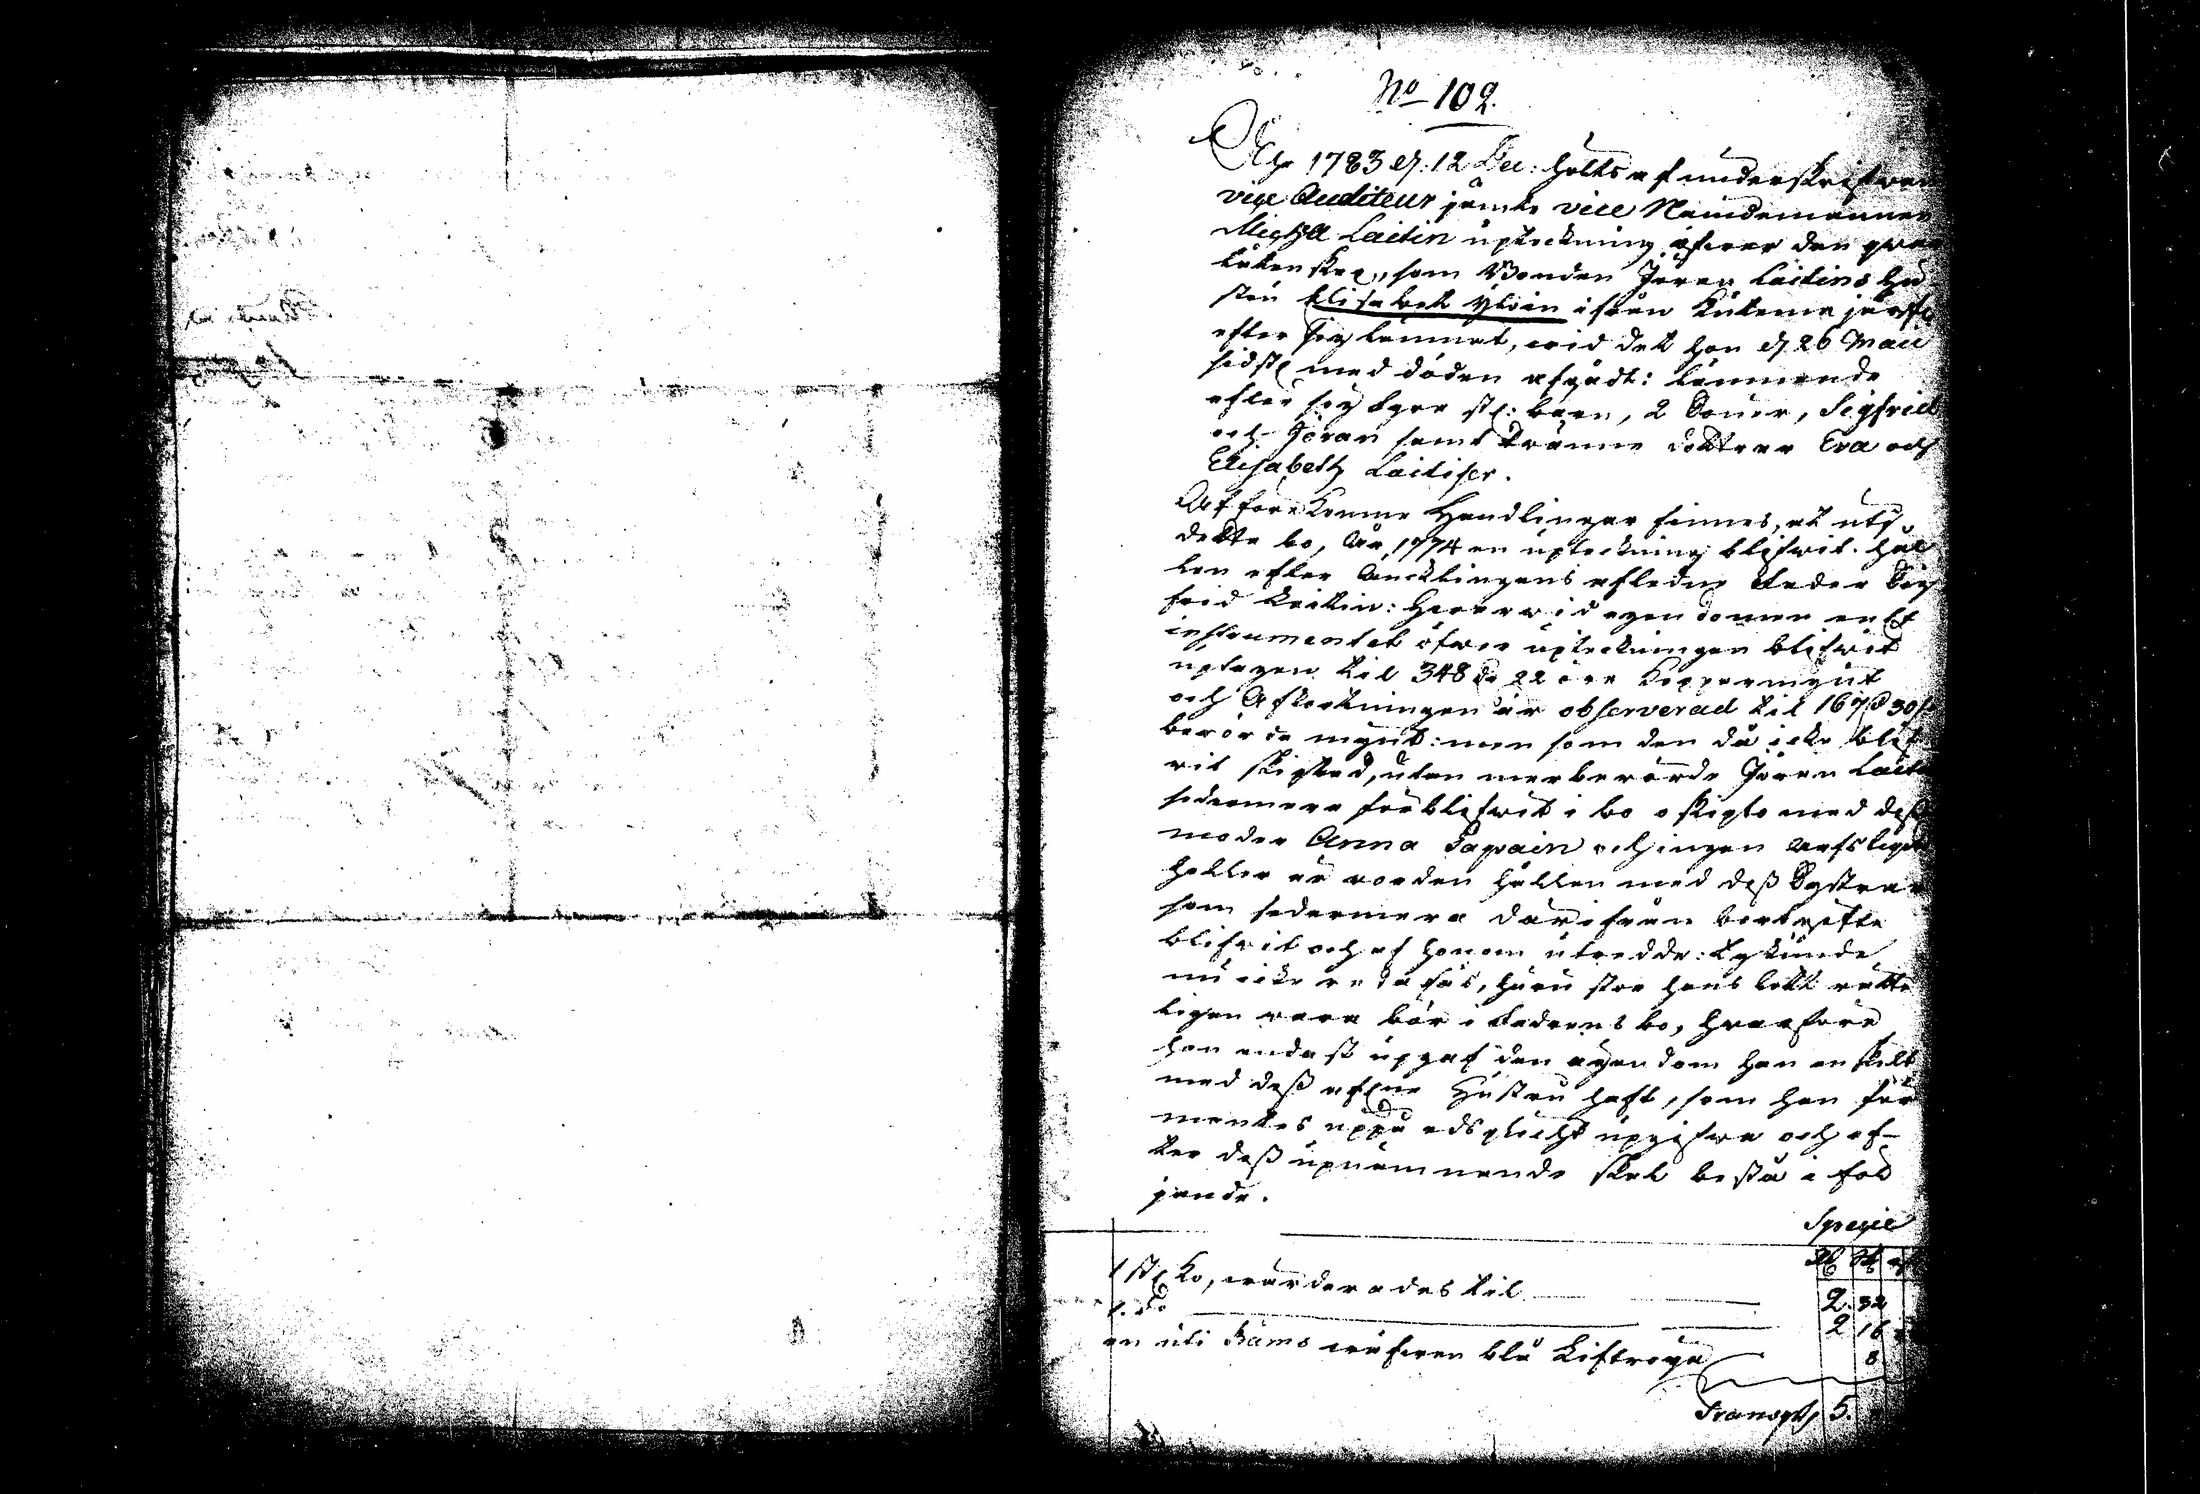 No 102.
Åhr 1783 d: 12 Dec: holts af underskrifwen
vice Auditeur jämte vice Nämdemannen
Mich:l Laitin uptekning öfwer den qwar
låtenskap, som Bonden Jöran Laitins hu
stru Elisabet Ylöin ifrån
efter sig lämnat, wid det hon d 26 Maii
sidstl med döden afgådt: lämnande
efter sig fyra st: barn, 2 Söner, Sigfried
och Jöran samt twänne döttrar Eva och
Elisabeth Laitiser.
Af förekomne Handlingar finnes, at uti
detta bo, År 1774 en uptekning blifwit hål
len efter Ancklingens afledne fader Sig
frid Laitin: Hwarwid egendomen enl:t
instrumentet öfwer uptekningen blifwit
uptagen til 348 d 22 öre Koppermynt
och Afkortningen är observerad til 167 d 30
berörde mynt: men som den då icke blif
vit skiftad, utan merberörde Jöran Laitin
sedermera förblifwit i bo oskipto med dess
moder Anna Papain och ingen arfs
heller är worden hållen med dess Systrar
som sedermera därifrån bortgifta
blifwit och af honom utredde: Ty kunde
nu icke reda fås, huru stor hans lott rätte
ligen wara bör i fadrens bo, hwarföre
han endast upgaf den egendom han enskilt
med dess aflne Hustru haft, som han för
mantes uppå edsplicht upgifwa och ef-
ter dess upnämnande skal bestå i föl
jande.
Specie
Rd sk
1 st: Ko, wärderades til 2. 32
1. do 2 16
en uti wäfwen blå Liftröya 8
Transp: 5.